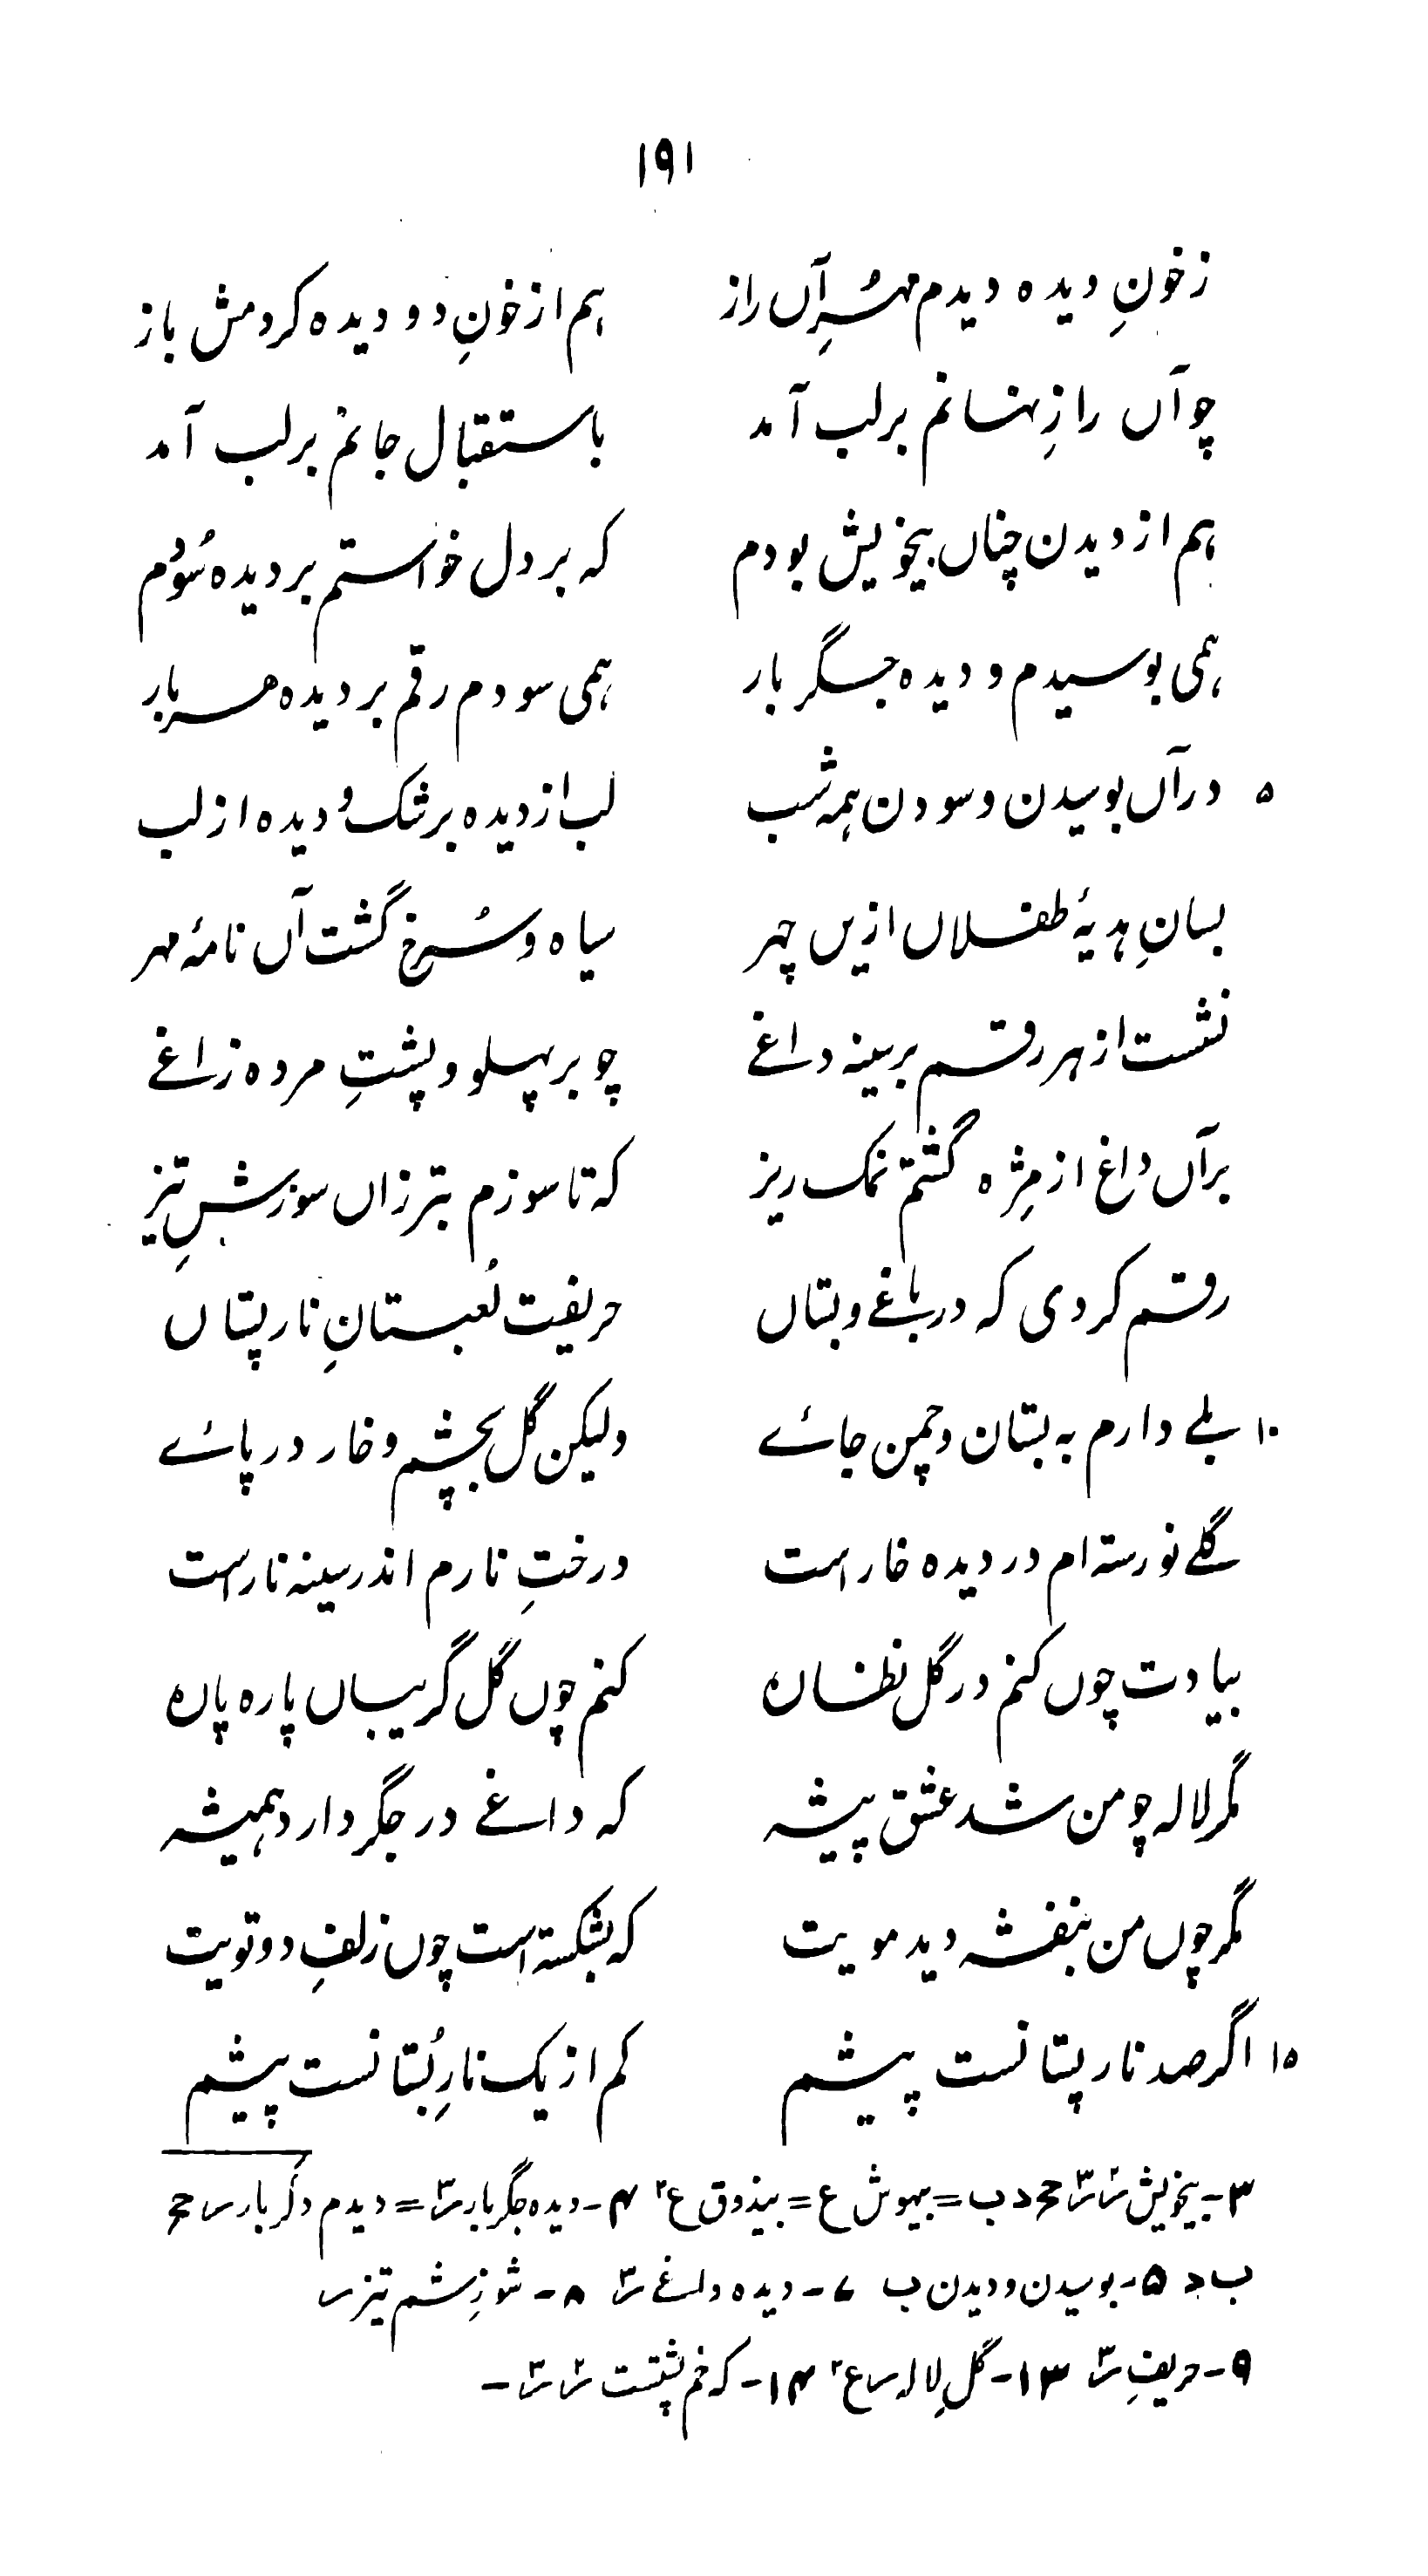 ۱۹۱
زخونِ دیده دیدم مُهرِ آں راز هم از خونِ دو دیده کردمش باز
چو آں رازِ نهانم بر لب آمد باستقبال جانم بر لب آمد
هم از دیدن چناں بیخویش بودم که بر دل خواستم بر دیده سُودم
همی بوسیدم و دیده جگر بار همی سودم رقم بر دیده هر بار
۵ در آں بوسیدن و سودن همه شب لب از دیده برشک و دیده از لب
بسانِ هدیهٔ طفلاں ازیں چهر سیاه و سُرخ گشت آں نامهٔ مهر
نشست از هر رقم بر سینه داغے چو بر پهلو و پشتِ مرده زاغے
بر آں داغ از مِژه گشتم نمک ریز که تا سوزم بتر زاں سوزشِ تیز
رقم کردی که در باغے و بستاں حریفت لُعبتانِ نار پستاں
۱۰ بلے دارم به بستان و چمن جائے ولیکن گل بچشم و خار در پائے
گلے نو رسته ام در دیده خار است درختِ نارم اندر سینه نار است
بیادت چوں کنم در گل نظاره کنم چوں گل گریباں پاره پاره
مگر لاله چو من شد عشق پیشه که داغے در جگر دارد همیشه
مگر چوں من بنفشه دید مویت که بشکسته است چوں زلفِ دوتویت
۱۵ اگر صد نار پستانست پیشم کم از یک نارِ بُستانست پیشم
۳- بیخویش د ب = بیهوش ع = بیذوق ع۲ ۴- دیده جگر بار = دیدم دگر بار
ب د ۵- بوسیدن و دیدن ب ۷- دیده داغے ۸- شوزِشم تیز
۹- حریفِ ۱۳- گلِ لاله ع۲ ۱۴- که خم پشتست